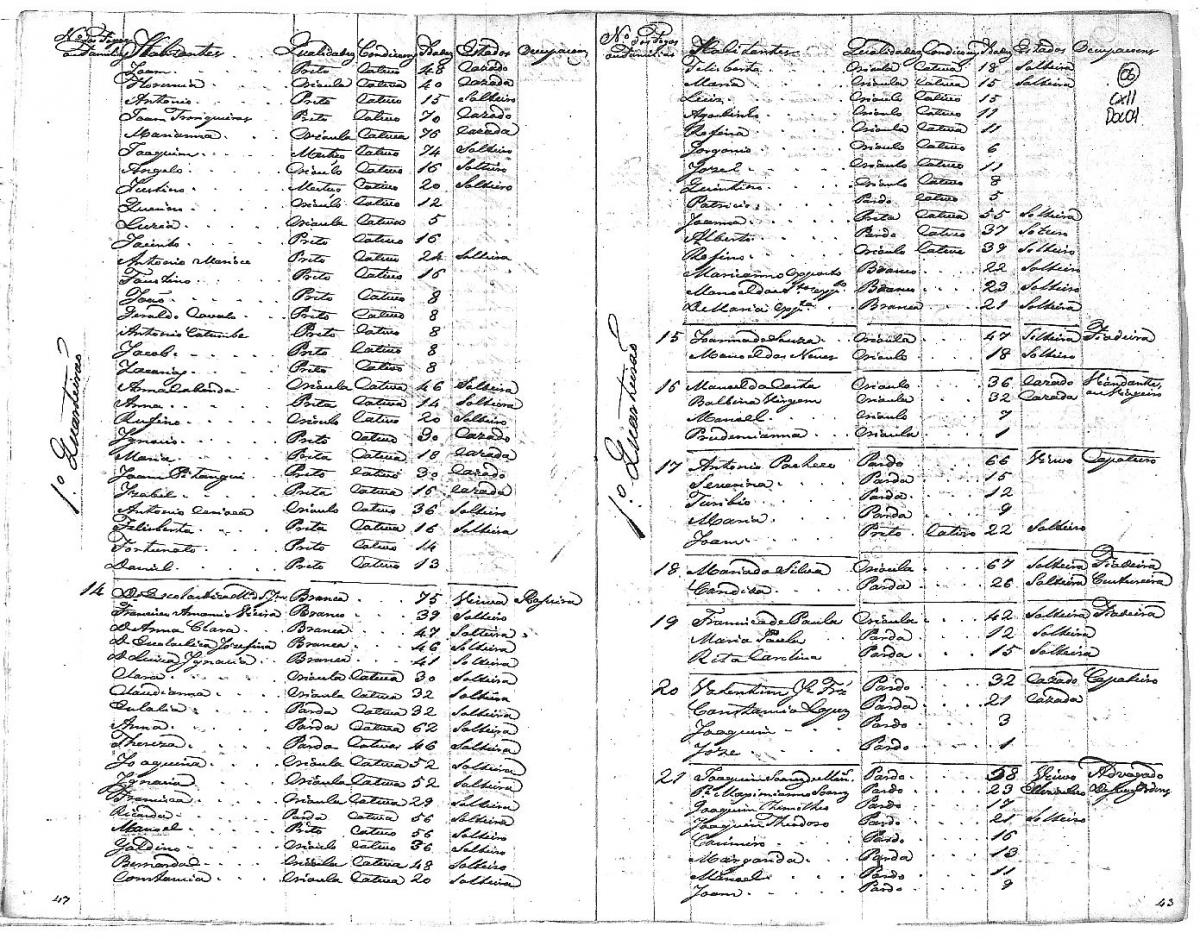 Nº dos Fogos ou Familias Habitantes Qualidades Condicoens Idades Estados Occupacoens
Joam Preto Cativo 48 Cazado
Florencia Crioula Cativa 40 Cazada
Antonio Preto Cativo 15 Solteiro
Joam Tronqueiras Preto Cativo 70 Cazado
Marianna Crioula Cativa 76 Cazada
Joaquim Cativo 74 Solteiro
Angelo Crioulo Cativo 16 Solteiro
Justino Cativo 20 Solteiro
Crioulo Cativo 12
Luzia Crioula Cativa 5
Jacinto Preto Cativo 16
Antonio Preto Cativo 24 Solteiro
Faustino Preto Cativo 16
João Preto Cativo 8
Geraldo Preto Cativo 8
Antonio Preto Cativo 8
Jacob Preto Cativo 8
Zacarias Preto Cativo 8
Anna Crioula Cativa 46 Solteira
Anna Preta Cativa 14 Solteira
Rufino Crioulo Cativo 20 Solteiro
Ignacio Preto Cativo 30 Cazado
Maria Preta Cativa 18 Cazada
Joam Pitangui Preto Cativo 30 Cazado
Izabel Preta Cativa 16 Cazada
Antonio Crioulo Cativo 36 Solteiro
Felisberta Preta Cativa 16 Solteira
Fortunato Preto Cativo 14
Daniel Preto Cativo 13
1º Quarteirão
14 Dª Escolastica Branca 75 Viuva
Francisco Antonio Vieira Branco 39 Solteiro
D. Anna Clara Branca 47 Solteira
D. Escolastica Jozefina Branca 46 Solteira
D. Luiza Ignacia Branca 41 Solteira
Clara Crioula Cativa 30 Solteira
Claudianna Crioula Cativa 32 Solteira
Eulalia Parda Cativa 32 Solteira
Anna Parda Cativa 62 Solteira
Thereza Parda Cativa 46 Solteira
Joaquina Crioula Cativa 52 Solteira
Ignacia Crioula Cativa 52 Solteira
Francisca Crioula Cativa 29 Solteira
Ricardo Pardo Cativo 56 Solteiro
Manoel Preto Cativo 56 Solteiro
Galdino Crioulo Cativo 36 Solteiro
Bernarda Crioula Cativa 48 Solteira
Constancia Crioula Cativa 20 Solteira
47
Nº dos Fogos ou Familias Habitantes Qualidades Condicoens Idades Estados Occupacoens
Felisberta Crioula Cativa 18 Solteira
Maria Crioula Cativa 15 Solteira
Luiz Crioulo Cativo 15
Agostinho Crioulo Cativo 11
Rofina Crioula Cativa 11
Gorgonio Crioulo Cativo 6
Jozé Crioulo Cativo 11
Quintino Crioulo Cativo 8
Patricio Pardo Cativo 5
Joanna Preta Cativa 55 Solteira
Alberto Pardo Cativo 37 Solteiro
Rofino Crioulo Cativo 39 Solteiro
Marianno Expposto Branco 22 Solteiro
Manoel Branco 23 Solteiro
D. Maria Branca 21 Solteira
06
CXII
Doc01
1º Quarteirão
15 Joanna de Souza Crioula 47 Solteira Fiadeira
Manoel das Neves Crioulo 18 Solteiro
16 Manoel da Costa Crioulo 36 Cazado Viandante,
Balbina Virgem Crioula 32 Cazada
Manoel Crioulo 7
Prudencianna Crioula 1
17 Antonio Pacheco Pardo 66 Viuvo Capateiro
Severina Parda 15
Turibio Pardo 12
Maria Parda 9
Joam Preto Cativo 22 Solteiro
18 Maria da Silva Crioula 67 Solteira Fiadeira
Candida Parda 26 Solteira Custureira
19 Francisca de Paula Crioula 42 Solteira Fiadeira
Maria Paula Parda 12 Solteira
Rita Carolina Parda 15 Solteira
20 Valentim Jé Pardo 32 Cazado Capateiro
Constancia Lopes Parda 21 Cazada
Joaquim Pardo 3
Józe Pardo 1
21 Joaquim Pardo 58 Viuvo Advogado
Pe Maximianno Pardo 23
Joaquim Thimotheo Pardo 17
Joaquim Theodoro Pardo 21 Solteiro
Casimiro Pardo 16
Marganida Parda 13
Manoel Pardo 11
Joam Pardo 9
43